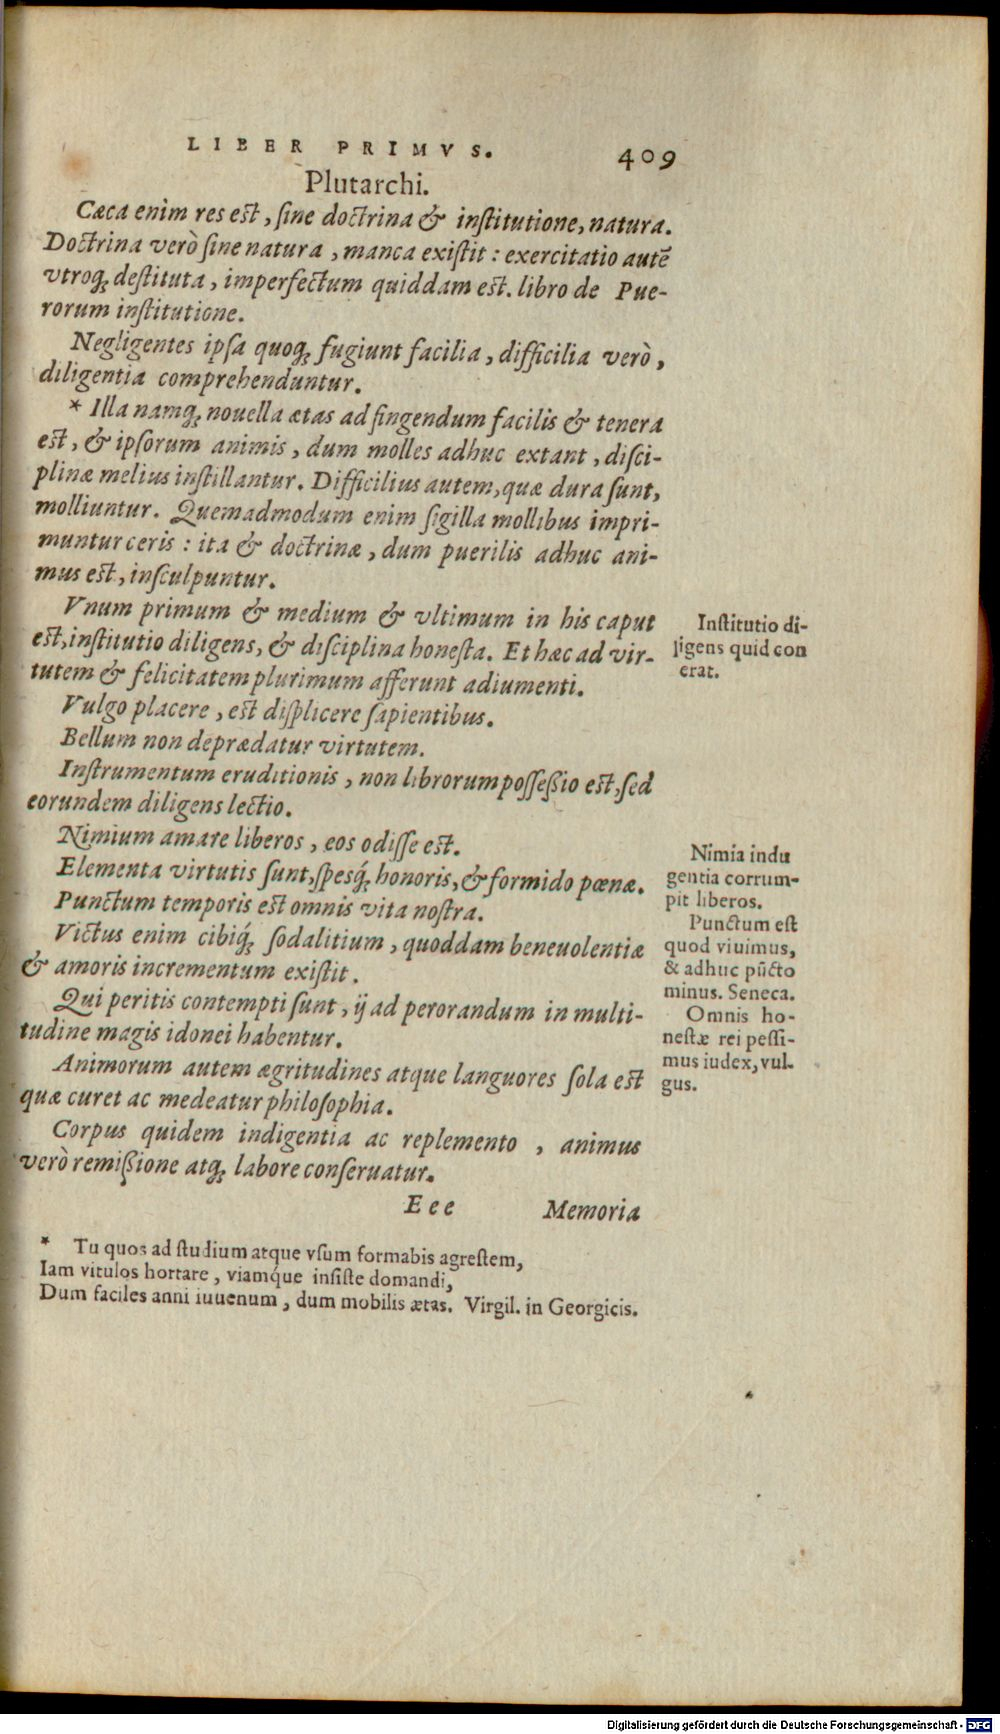 LIBER PRIMVS.
409
Plutarchi.
Cæca enim res est, sine doctrina & institutione, natura.
Doctrina verò sine natura, manca existit: exercitatio autē
vtroq; destituta, imperfectum quiddam est. libro de Pue-
rorum institutione.
Negligentes ipsa quoq; fugiunt facilia, difficilia verò,
diligentia comprehenduntur.
* Illa namq; nouella ætas ad fingendum facilis & tenera
est, & ipsorum animis, dum molles adhuc extant, disci-
plinæ melius instillantur. Difficilius autem, quæ dura sunt,
molliuntur. Quemadmodum enim sigilla mollibus impri-
muntur ceris: ita & doctrinæ, dum puerilis adhuc ani-
mus est, insculpuntur.
Vnum primum & medium & vltimum in his caput
est, institutio diligens, & disciplina honesta. Et hæc ad vir-
tutem & felicitatem plurimum afferunt adiumenti.
Institutio di-
ligens quid con
erat.
Vulgo placere, est displicere sapientibus.
Bellum non deprædatur virtutem.
Instrumentum eruditionis, non librorum possessio est, sed
eorundem diligens lectio.
Nimium amare liberos, eos odisse est.
Elementa virtutis sunt, spesq́; honoris, & formido pœnæ.
Punctum temporis est omnis vita nostra.
Victus enim cibiq́; sodalitium, quoddam beneuolentiæ
& amoris incrementum existit.
Qui peritis contempti sunt, ij ad perorandum in multi-
tudine magis idonei habentur.
Animorum autem ægritudines atque languores sola est
quæ curet ac medeatur philosophia.
Corpus quidem indigentia ac replemento, animus
verò remissione atq; labore conseruatur.
Nimia indu
gentia corrum-
pit liberos.
Punctum est
quod viuimus,
& adhuc pūcto
minus. Seneca.
Omnis ho-
nestæ rei pessi-
mus iudex, vul-
gus.
Eee Memoria
* Tu quos ad studium atque vsum formabis agrestem,
Iam vitulos hortare, viamq́ue insiste domandi,
Dum faciles anni iuuenum, dum mobilis ætas. Virgil. in Georgicis.
Digitalisierung gefördert durch die Deutsche Forschungsgemeinschaft - DFG